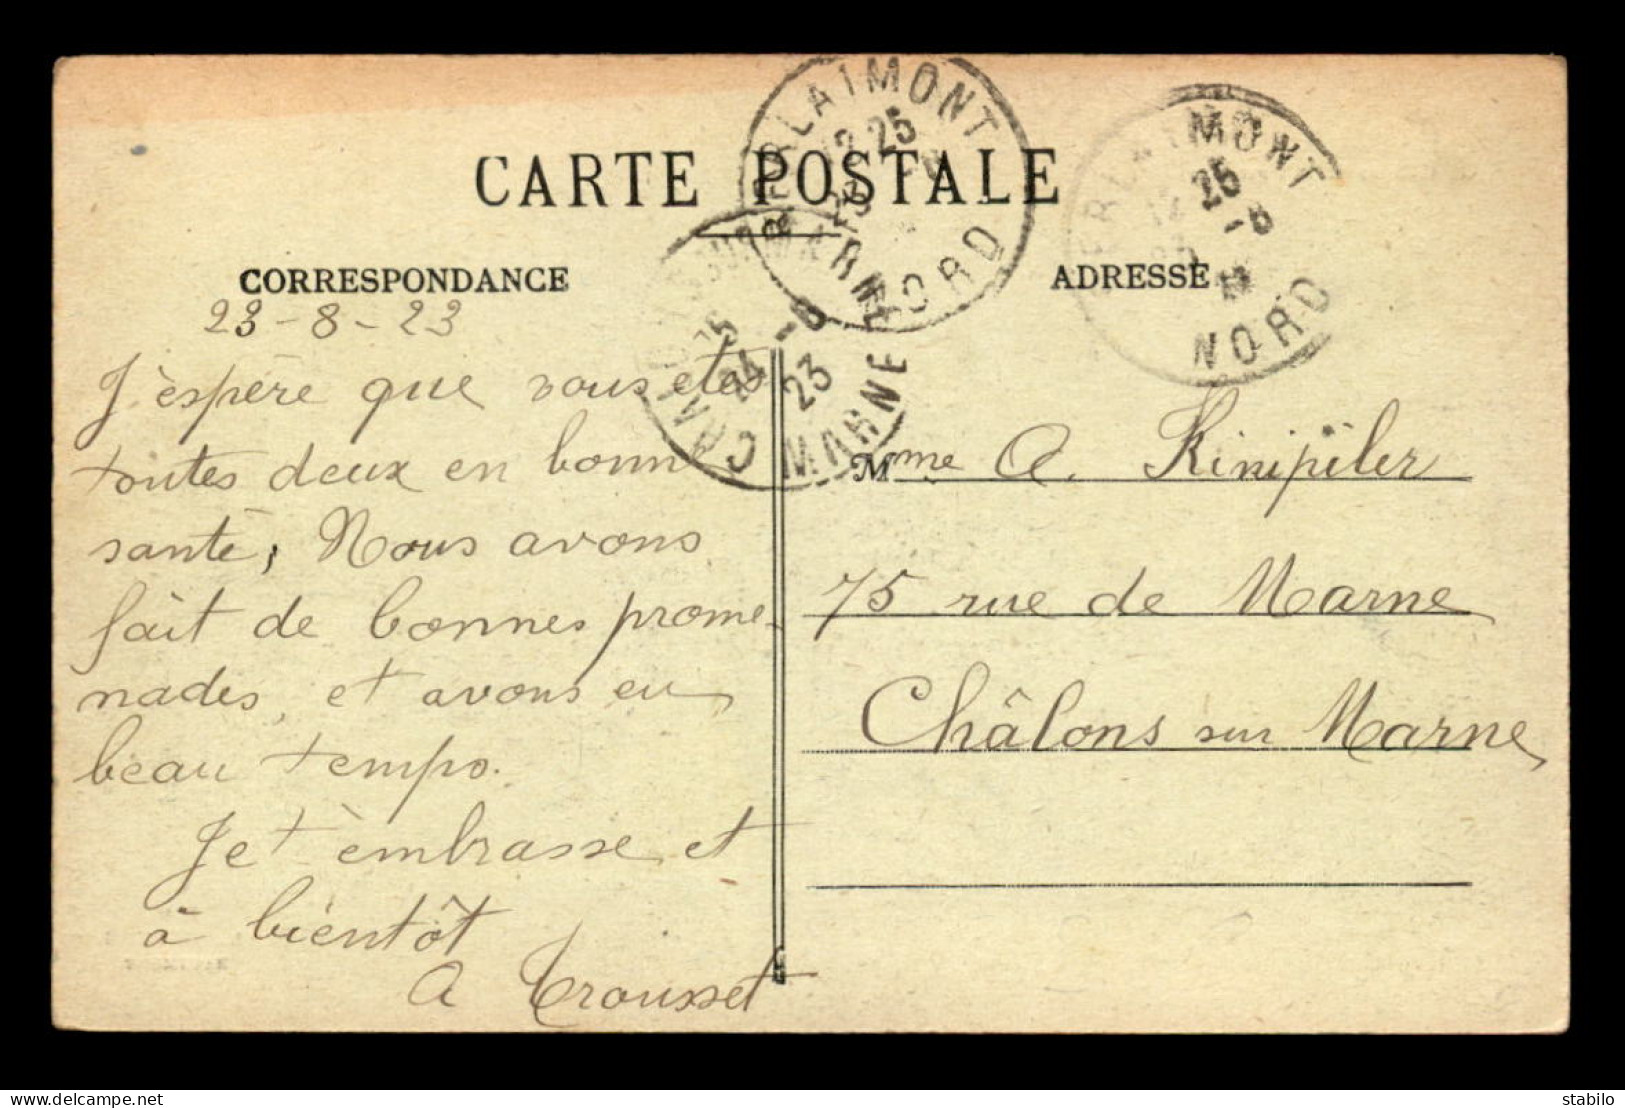 CARTE POSTALE
CORRESPONDANCE
23-8-23
J'espère que vous etes
toutes deux en bonne
santé, Nous avons
fait de bonnes prome-
nades, et avons eu
beau temps.
Je t'embrasse et
à bientôt
A Trousset
BERLAIMONT
12 25
23
NORD
CHALONS SUR MARNE
15
24 -8
23
MARNE
BERLAIMONT
25
-8
NORD
ADRESSE
Mme A. Kinipiler
75 rue de Marne
Châlons sur Marne
delcampe.net
stabilo